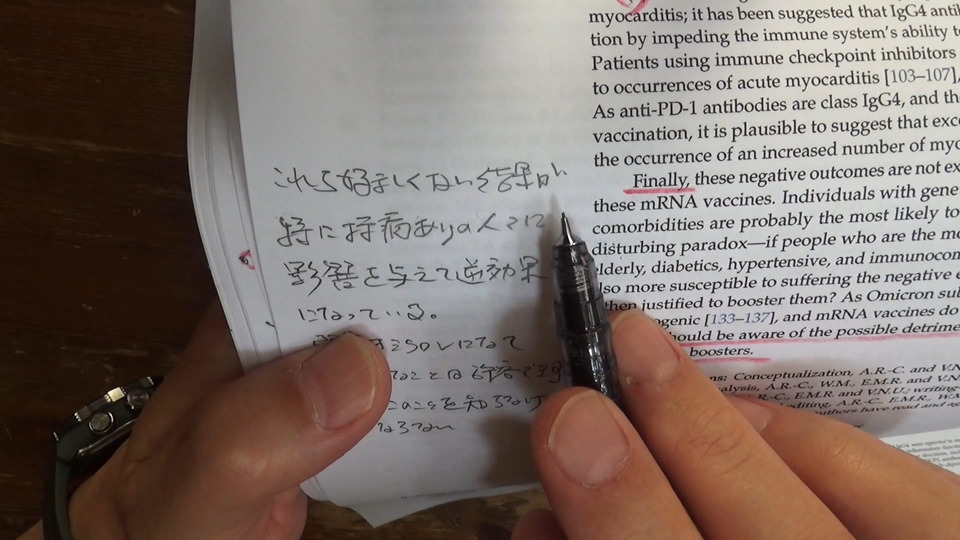 これら好ましくない結果が
特に持病ありの人々に
影響を与えて逆効果
になっている。
ことは許容でき
このことを知らなけ
ならない
myocarditis; it has been suggested that IgG4 anti
tion by impeding the immune system's ability to
Patients using immune checkpoint inhibitors
to occurrences of acute myocarditis [103–107],
As anti-PD-1 antibodies are class IgG4, and the
vaccination, it is plausible to suggest that exc
the occurrence of an increased number of myo
Finally, these negative outcomes are not ex
these mRNA vaccines. Individuals with gene
comorbidities are probably the most likely to
disturbing paradox—if people who are the mo
elderly, diabetics, hypertensive, and immunocom
lso more susceptible to suffering the negative e
then justified to booster them? As Omicron sub
ogenic [133–137], and mRNA vaccines do
ould be aware of the possible detrime
boosters.
ns: Conceptualization, A.R.-C. and V.N
alysis, A.R.-C., W.M., E.M.R. and V.N.U.; writing
R.-C., E.M.R. and V.
editing, A.R.-C., E.M.R., W.M
authors have read and